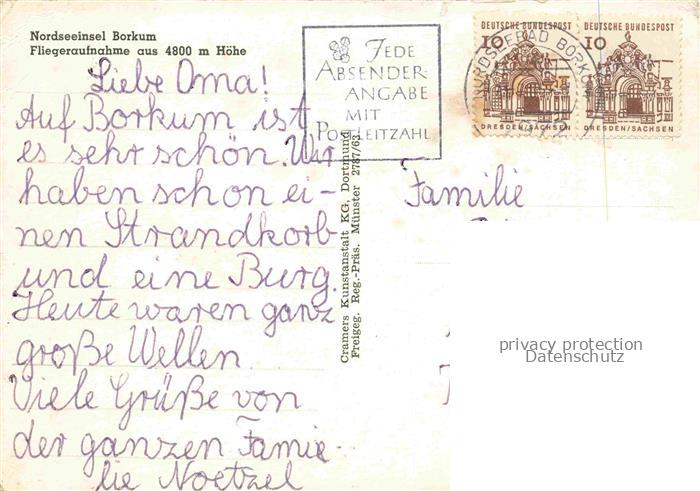 Nordseeinsel Borkum
Fliegeraufnahme aus 4800 m Höhe
Liebe Oma!
Auf Borkum ist
es sehr schön. Wir
haben schon ei-
nen Strandkorb
und eine Burg.
Heute waren ganz
große Wellen.
Viele Grüße von
der ganzen Fami-
lie Noetzel
JEDE
ABSENDER-
ANGABE
MIT
POSTLEITZAHL
NORDSEEBAD BORKUM
10 DEUTSCHE BUNDESPOST
DRESDEN/SACHSEN
10 DEUTSCHE BUNDESPOST
DRESDEN/SACHSEN
Cramers Kunstanstalt KG. Dortmund
Freigeg. Reg.-Präs. Münster 2787/63
Familie
privacy protection
Datenschutz